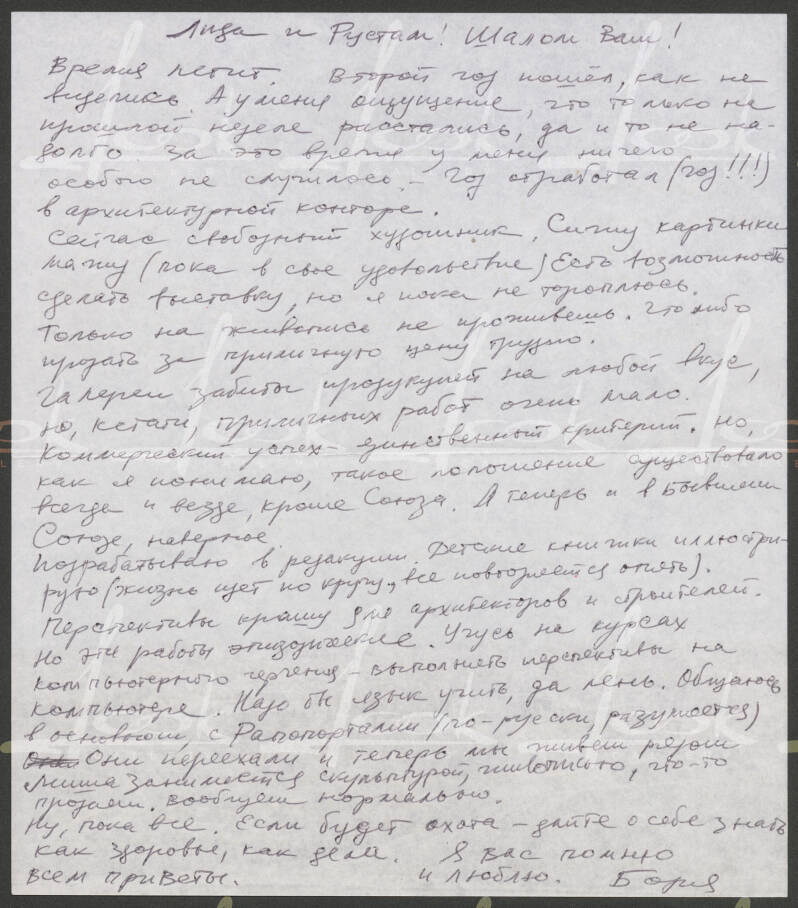 Лида и Рустам! Шалом Вам!
Время летит. Второй год пошёл, как не
виделись. А у меня ощущение, что только на
прошлой неделе расстались, да и то не на-
долго. За это время у меня ничего
особого не случилось – год отработал (год!!!)
в архитектурной конторе.
Сейчас свободный художник. Сижу картинки
мажу (пока в свое удовольствие) Есть возможность
сделать выставку, но я пока не тороплюсь.
Только на живопись не проживешь. Что либо
продать за приличную цену трудно.
Галереи забиты продукцией на любой вкус,
но, кстати, приличных работ очень мало.
Коммерческий успех – единственный критерий. Но,
как я понимаю, такое положение существовало
всегда и везде, кроме Союза. А теперь и в бывшем
Союзе, наверное.
Подрабатываю в редакции. Детские книжки иллюстри-
рую (жизнь идет по кругу, все повторяется опять).
Перспективы крашу для архитекторов и строителей.
Но эти работы эпизодические. Учусь на курсах
компьютерного черчения – выполнять перспективы на
компьютере. Надо бы язык учить, да лень. Общаюсь
в основном, с Рапопортами (по-русски, разумеется)
Они переехали и теперь мы живем рядом
Миша занимается скульптурой, живописью, что-то
продает. Вообщем нормально.
Ну, пока все. Если будет охота – дайте о себе знать
как здоровье, как дела. Я вас помню
всем приветы. и люблю. Боря